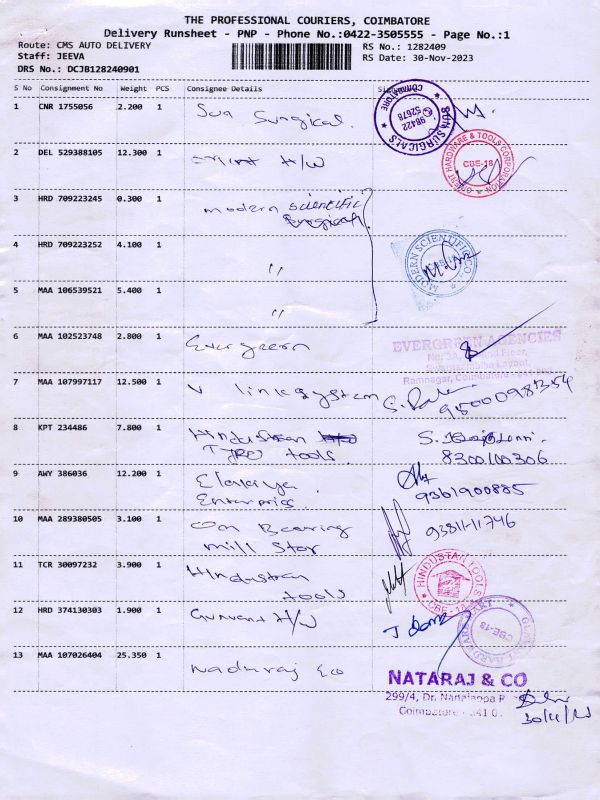 THE PROFESSIONAL COURIERS, COIMBATORE
Delivery Runsheet - PNP - Phone No.:0422-3505555 - Page No.:1
Route: CMS AUTO DELIVERY
RS No.: 1282409
Staff: JEEVA
RS Date: 30-Nov-2023
DRS No.: DCJB128240901
S No Consignment No Weight PCS Consignee Details
1 CNR 1755056 2.200 1 Sun Surgical.
SUN SURGICALS COIMBATORE 98422 52678
2 DEL 529388105 12.300 1 H/W
ORIENT HARDWARE & TOOLS CORPORATION CBE-18
3 HRD 709223245 0.300 1 modern scientific
Surgical
4 HRD 709223252 4.100 1 "
MODERN SCIENTIFIC CO.
5 MAA 106539521 5.400 1 "
6 MAA 102523748 2.800 1 Evergreen
EVERGREEN AGENCIES
Ramnagar, Coimbatore
7 MAA 107997117 12.500 1 V link system
9500098354
8 KPT 234486 7.800 1 Hindustan
TYRO tools.
8300100306
9 AWY 386036 12.200 1 Elakkiya
Enterprise
9361900885
10 MAA 289380505 3.100 1 Om Bearing
mill Stor
93811-11746
11 TCR 30097232 3.900 1 Hindustan
tools
HINDUSTAN TOOLS CBE-18
12 HRD 374130303 1.900 1 H/W
HARDWARE MART CBE-18
13 MAA 107026404 25.350 1 Naduraj Co
NATARAJ & CO
299/4, Dr. Nanjappa R
Coimbatore - 641 0